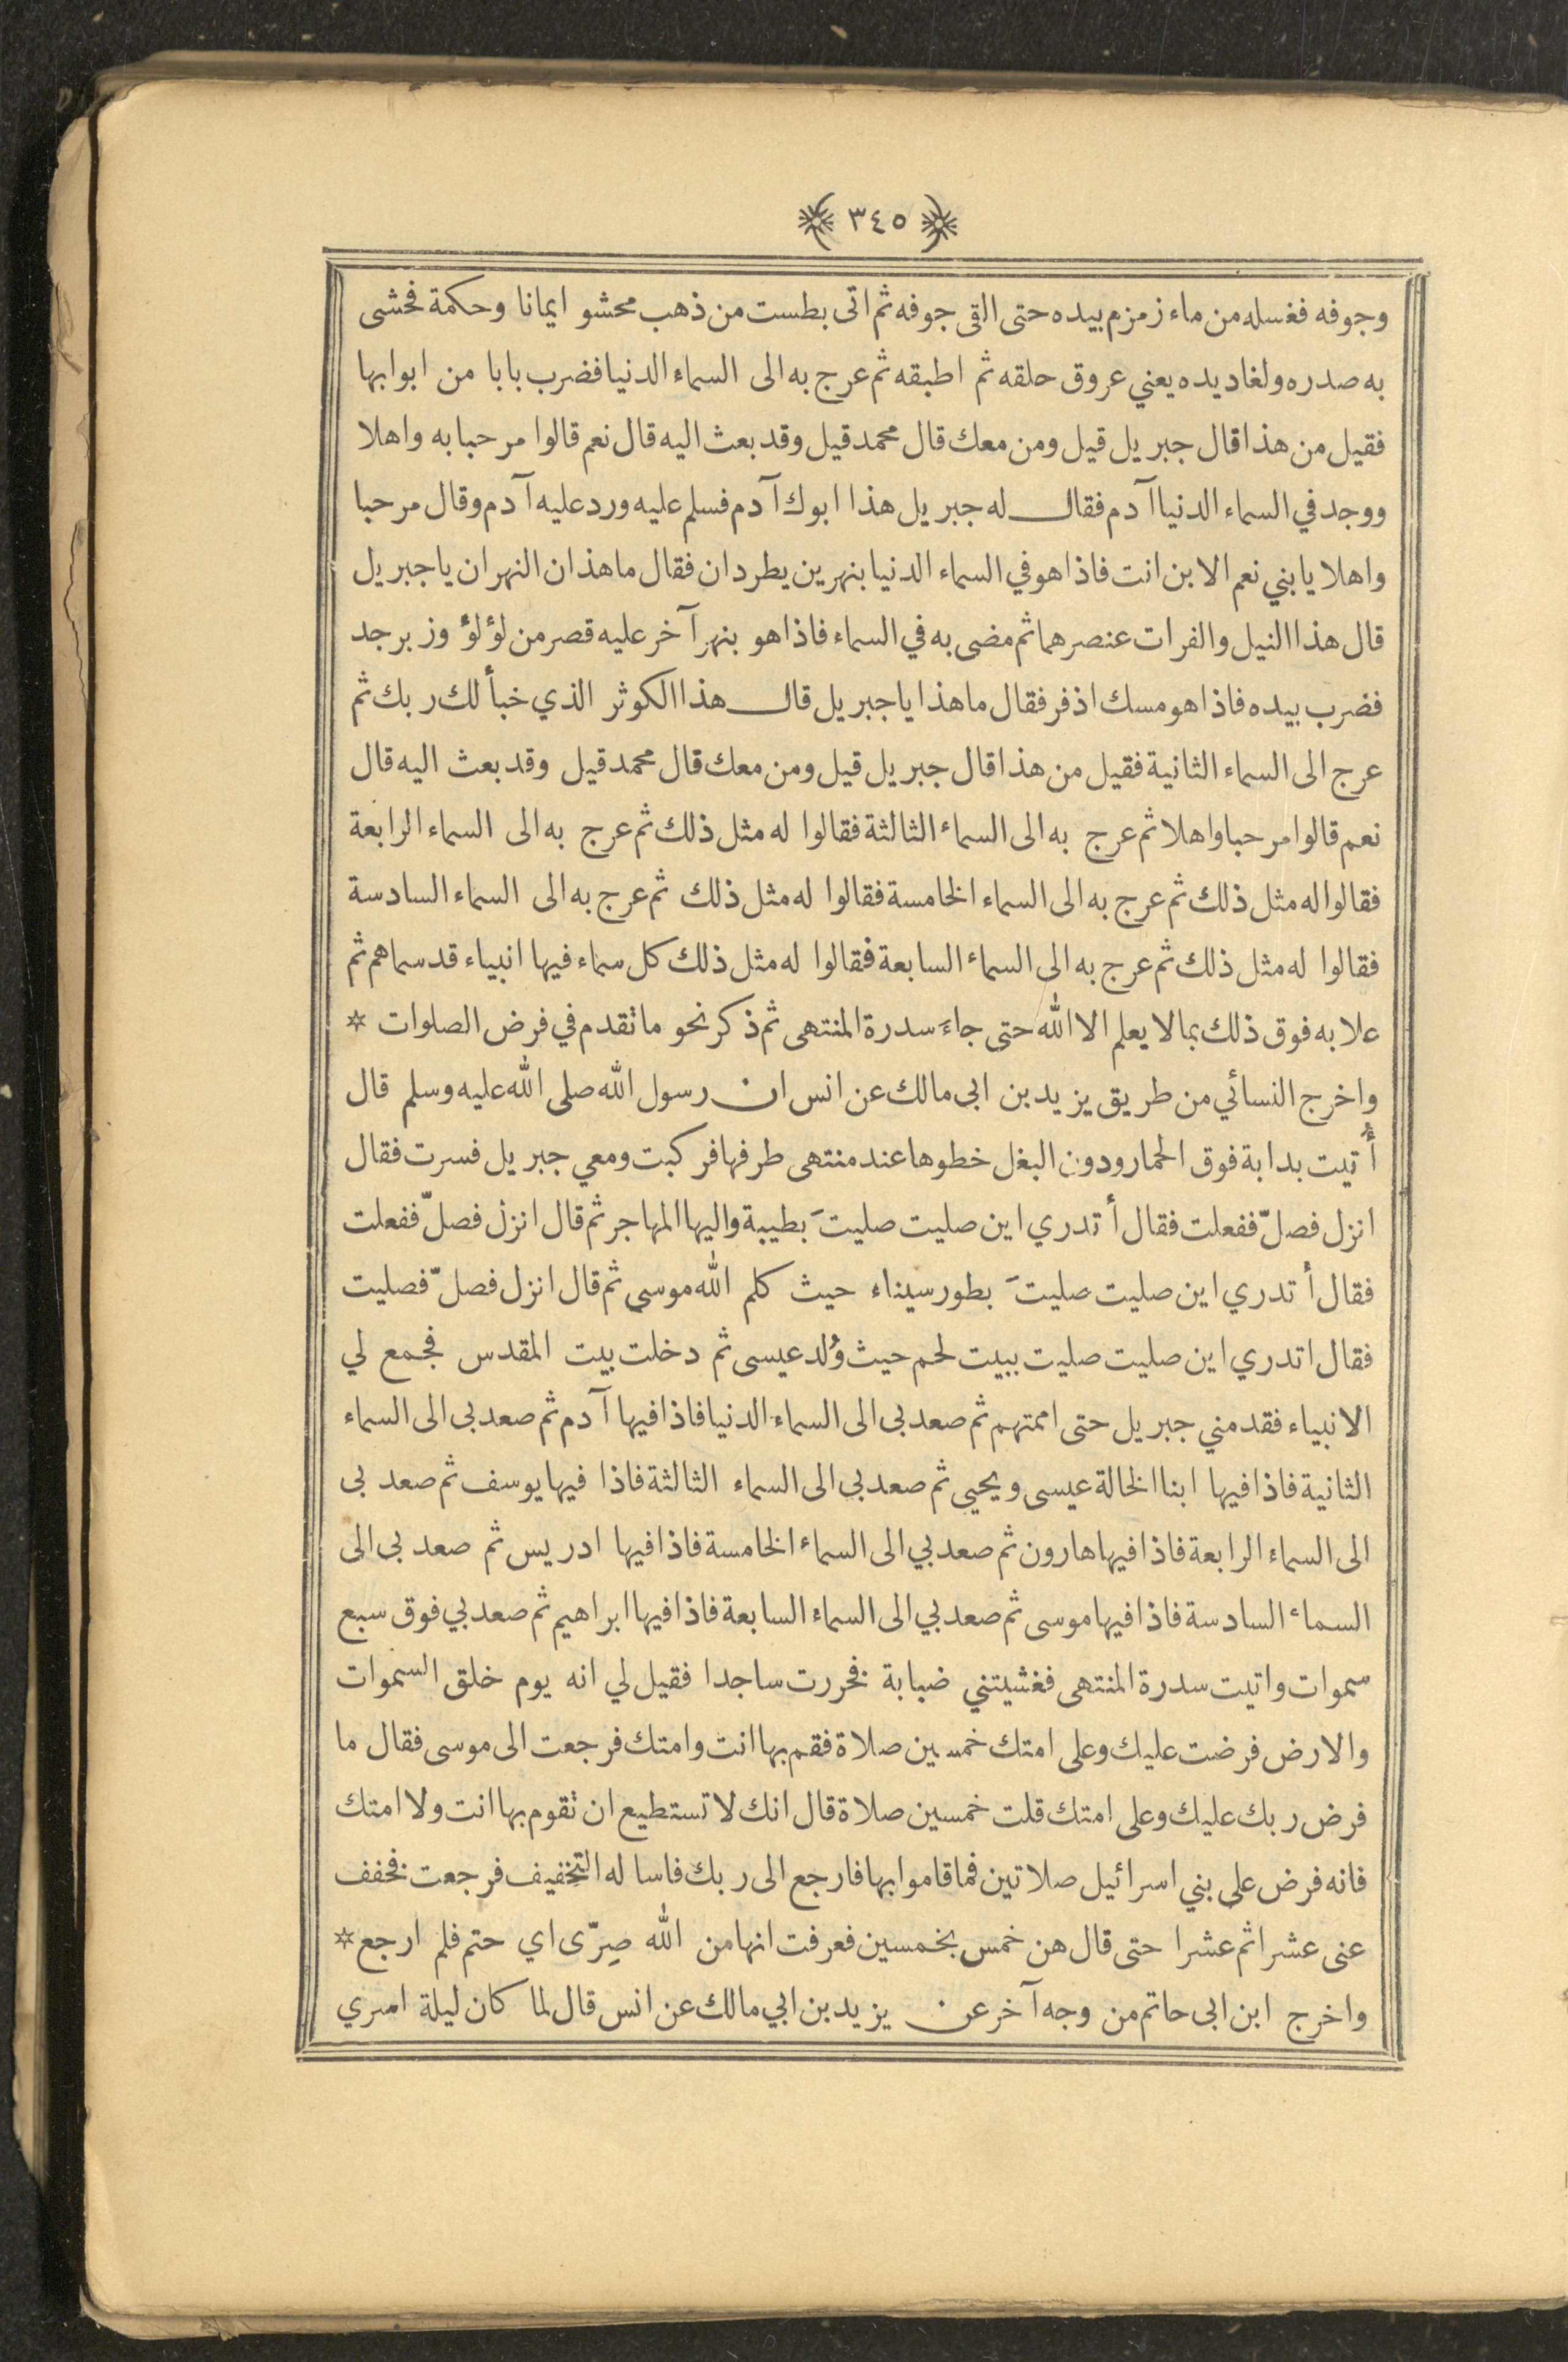 ٣٤٥
وجوفه فغسله من ماء زمزم بيده حتى القى جوفه ثم اتى بطست من ذهب محشو ايمانا وحكمة فحشى
به صدره ولغاديده يعني عروق حلقه ثم اطبقه ثم عرج به الى السماء الدنيا فضرب بابا من ابوابها
فقيل من هذا قال جبريل قيل ومن معك قال محمد قيل وقد بعث اليه قال نعم قالوا مرحبا به واهلا
ووجد في السماء الدنيا آدم فقال له جبريل هذا ابوك آدم فسلم عليه ورد عليه آدم وقال مرحبا
واهلا يا بني نعم الابن انت فاذا هو في السماء الدنيا بنهرين يطردان فقال ما هذان النهران يا جبريل
قال هذا النيل والفرات عنصرهما ثم مضى به في السماء فاذا هو بنهر آخر عليه قصر من لؤلؤ وزبرجد
فضرب بيده فاذا هو مسك اذفر فقال ما هذا يا جبريل قال هذا الكوثر الذي خبأ لك ربك ثم
عرج الى السماء الثانية فقيل من هذا قال جبريل قيل ومن معك قال محمد قيل وقد بعث اليه قال
نعم قالوا مرحبا واهلا ثم عرج به الى السماء الثالثة فقالوا له مثل ذلك ثم عرج به الى السماء الرابعة
فقالوا له مثل ذلك ثم عرج به الى السماء الخامسة فقالوا له مثل ذلك ثم عرج به الى السماء السادسة
فقالوا له مثل ذلك ثم عرج به الى السماء السابعة فقالوا له مثل ذلك كل سماء فيها انبياء قد سماهم ثم
علا به فوق ذلك بما لا يعلم الا الله حتى جاءَ سدرة المنتهى ثم ذكر نحو ما تقدم في فرض الصلوات *
واخرج النسائي من طريق يزيد بن ابي مالك عن انس ان رسول الله صلى الله عليه وسلم قال
أُتيت بدابة فوق الحمار ودون البغل خطوها عند منتهى طرفها فركبت ومعي جبريل فسرت فقال
انزل فصلّ ففعلت فقال أتدري اين صليت صليتَ بطيبة واليها المهاجر ثم قال انزل فصلّ ففعلت
فقال أتدري اين صليت صليتَ بطور سيناء حيث كلم الله موسى ثم قال انزل فصلّ فصليت
فقال اتدري اين صليت صليت ببيت لحم حيث وُلد عيسى ثم دخلت بيت المقدس فجمع لي
الانبياء فقدمني جبريل حتى اممتهم ثم صعد بي الى السماء الدنيا فاذا فيها آدم ثم صعد بي الى السماء
الثانية فاذا فيها ابنا الخالة عيسى ويحيى ثم صعد بي الى السماء الثالثة فاذا فيها يوسف ثم صعد بي
الى السماء الرابعة فاذا فيها هارون ثم صعد بي الى السماء الخامسة فاذا فيها ادريس ثم صعد بي الى
السماء السادسة فاذا فيها موسى ثم صعد بي الى السماء السابعة فاذا فيها ابراهيم ثم صعد بي فوق سبع
سموات واتيت سدرة المنتهى فغشيتني ضبابة فخررت ساجدا فقيل لي انه يوم خلق السموات
والارض فرضت عليك وعلى امتك خمسين صلاة فقم بها انت وامتك فرجعت الى موسى فقال ما
فرض ربك عليك وعلى امتك قلت خمسين صلاة قال انك لا تستطيع ان تقوم بها انت ولا امتك
فانه فرض على بني اسرائيل صلاتين فما قاموا بها فارجع الى ربك فاساله التخفيف فرجعت فخفف
عنى عشرا ثم عشرا حتى قال هن خمس بخمسين فعرفت انها من الله صِرّى اي حتم فلم ارجع *
واخرج ابن ابي حاتم من وجه آخر عن يزيد بن ابي مالك عن انس قال لما كان ليلة اسري